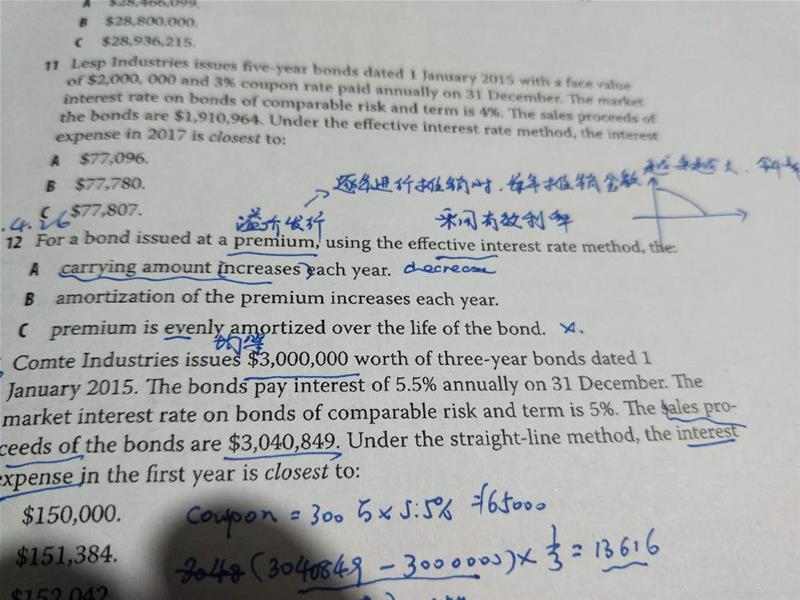 A $28,466,099.
B $28,800,000.
C $28,936,215.
11 Lesp Industries issues five-year bonds dated 1 January 2015 with a face value
of $2,000, 000 and 3% coupon rate paid annually on 31 December. The market
interest rate on bonds of comparable risk and term is 4%. The sales proceeds of
the bonds are $1,910,964. Under the effective interest rate method, the interest
expense in 2017 is closest to:
A $77,096.
B $77,780.
逐年进行摊销时,每年摊销金额
C $77,807.
4.26
溢价发行
采用有效利率
12 For a bond issued at a premium, using the effective interest rate method, the:
A carrying amount increases each year. decrease
B amortization of the premium increases each year.
C premium is evenly amortized over the life of the bond. ×.
均等
Comte Industries issues $3,000,000 worth of three-year bonds dated 1
January 2015. The bonds pay interest of 5.5% annually on 31 December. The
market interest rate on bonds of comparable risk and term is 5%. The sales pro-
ceeds of the bonds are $3,040,849. Under the straight-line method, the interest
expense in the first year is closest to:
$150,000.
coupon = 300万×5.5% =165000
$151,384.
(3040849 - 3000000)× 1/3 = 13616
$152,042.